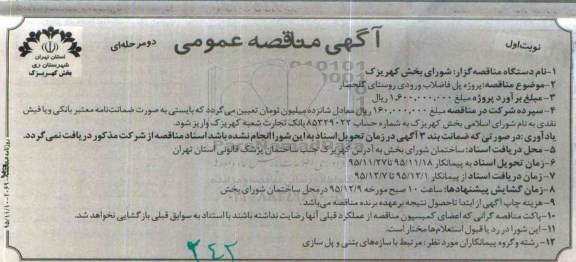 نوبت اول
آگهی مناقصه عمومی
دو مرحله‌ای
استان تهران
شهرستان ری
بخش کهریزک
۱-نام دستگاه مناقصه‌گزار: شورای بخش کهریزک
۲-موضوع مناقصه: پروژه پل فاضلاب ورودی روستای گلحصار
۳-مبلغ برآورد پروژه مبلغ ۱.۶۰۰.۰۰۰.۰۰۰ ریال
۴-سپرده شرکت در مناقصه مبلغ ۱۶۰.۰۰۰.۰۰۰ ریال معادل شانزده میلیون تومان تعیین می‌گردد که بایستی به صورت ضمانت‌نامه معتبر بانکی و یا فیش
نقدی به نام شورای اسلامی بخش کهریزک به شماره حساب ۸۵۳۲۹۰۲۲ بانک تجارت شعبه کهریزک واریز شود.
یادآوری : در صورتی که ضمانت بند ۳ آگهی در زمان تحویل اسناد به این شورا انجام نشده باشد اسناد مناقصه از شرکت مذکور دریافت نمی‌گردد.
۵-محل دریافت اسناد: ساختمان شورای بخش به آدرس کهریزک جنب ساختمان پزشک قانونی استان تهران
۶-زمان تحویل اسناد به پیمانکار ۹۵/۱۱/۱۸ تا ۹۵/۱۱/۲۷
۷-زمان دریافت اسناد از پیمانکار ۹۵/۱۲/۱ تا ۹۵/۱۲/۷
۸-زمان گشایش پیشنهادها: ساعت ۱۰ صبح مورخه ۹۵/۱۲/۹ در محل ساختمان شورای بخش
۹-هزینه چاپ آگهی از ابتدا تا حصول نتیجه برعهده برنده مناقصه می‌باشد.
۱۰-پاکت مناقصه گرانی که اعضای کمیسیون مناقصه از عملکرد قبلی آنها رضایت نداشته باشند با استناد به سوابق قبلی بازگشایی نخواهد شد.
۱۱-این شورا در رد یا قبول استعلام‌ها مختار است.
۱۲-رشته و گروه پیمانکاران مورد نظر : مرتبط با سازه‌های بتنی و پل سازی
۲۴۲